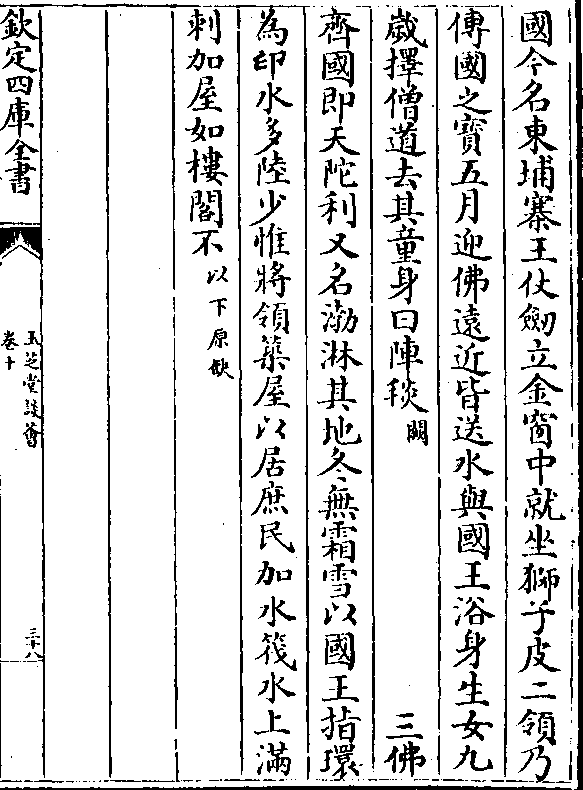 國今名東埔寨王仗劒立金窗中就坐獅子皮二領乃
傳國之寶五月迎佛遠近皆送水與國王浴身生女九
歲擇僧道去其童身曰陣毯闕 三佛
齊國即天陀利又名渤淋其地冬無霜雪以國王指環
為印水多陸少惟將領築屋以居庶民加水筏水上滿
刺加屋如樓閣不以下原缺
欽定四庫全書
玉芝堂談薈
卷十
三十八